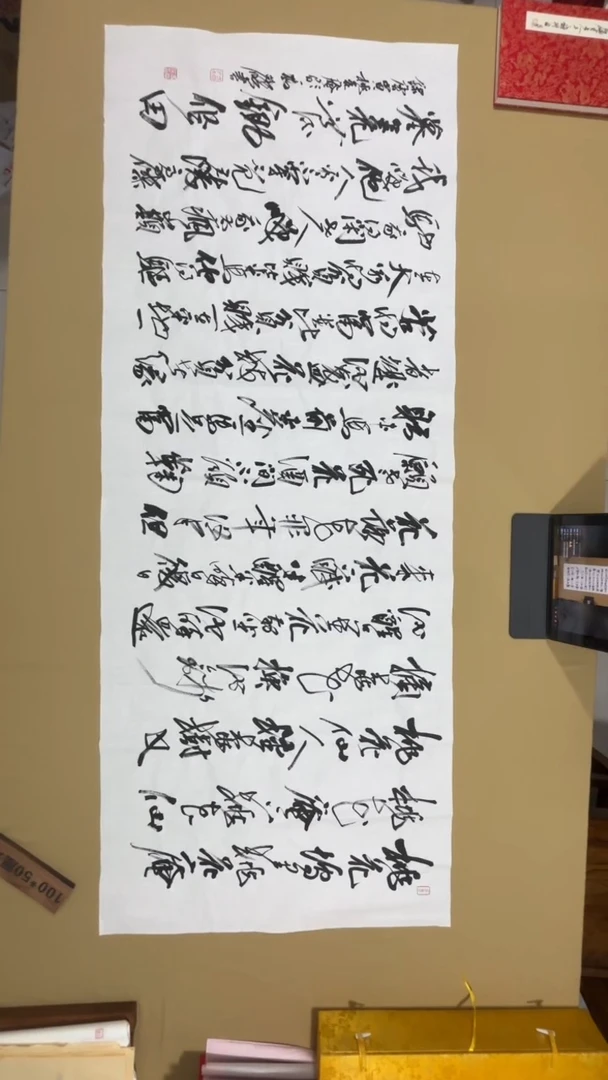 桃花塢里桃花庵
桃花庵下桃花仙
桃花仙人種桃樹又
摘桃花換酒錢
酒醒只在花前坐酒醉還
來花下眠半醒半醉日復日
花落花開年復年但
願老死花酒間不願鞠
躬車馬前車塵馬足富
者趣酒盞花枝貧者緣
若將富貴比貧賤一在平地一
在天若將貧賤比車馬他得驅
馳我得閑別人笑我忒瘋癲
我笑他人看不穿不見五陵豪
傑墓無花無酒鋤作田
100*50